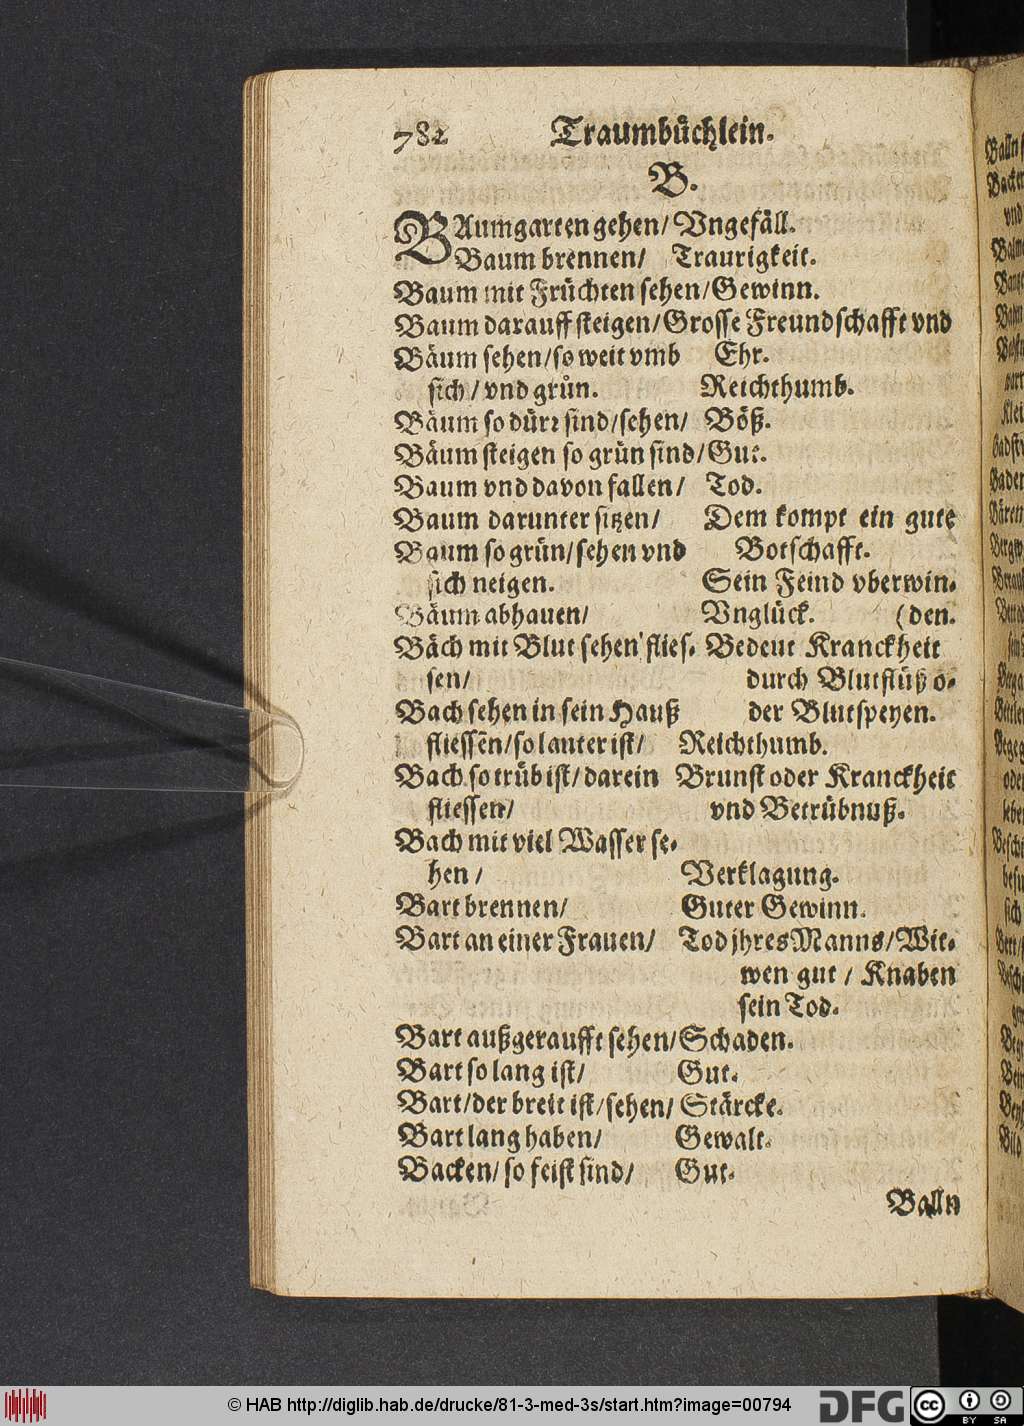 782 Traumbüchlein.
B.
BAumgarten gehen/ Vngefäll.
Baum brennen/ Traurigkeit.
Baum mit Früchten sehen/ Gewinn.
Baum darauff steigen/ Grosse Freundschafft vnd
Bäum sehen/ so weit vmb Ehr.
sich/ vnd grün. Reichthumb.
Bäum so dürr sind/ sehen/ Böß.
Bäum steigen so grün sind/ Gut.
Baum vnd davon fallen/ Tod.
Baum darunter sitzen/ Dem kompt ein gute
Baum so grün/ sehen vnd Botschafft.
sich neigen. Sein Feind vberwin-
Bäum abhauen/ Vnglück. (den.
Bäch mit Blut sehen flies- Bedeut Kranckheit
sen/ durch Blutflüß o-
Bach sehen in sein Hauß der Blutspeyen.
fliessen/ so lauter ist/ Reichthumb.
Bach so trüb ist/ darein Brunst oder Kranckheit
fliessen/ vnd Betrübnuß.
Bach mit viel Wasser se-
hen/ Verklagung.
Bart brennen/ Guter Gewinn.
Bart an einer Frauen/ Tod jhres Manns/ Wit-
wen gut/ Knaben
sein Tod.
Bart außgeraufft sehen/ Schaden.
Bart so lang ist/ Gut.
Bart/ der breit ist/ sehen/ Stärcke.
Bart lang haben/ Gewalt.
Backen/ so feist sind/ Gut.
Balln
© HAB http://diglib.hab.de/drucke/81-3-med-3s/start.htm?image=00794
DFG
cc BY SA